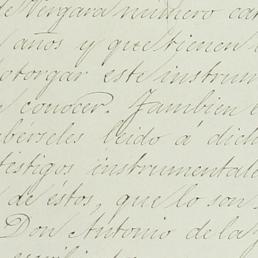 de Vergara número cat
años y que tienen
otorgar este instrum
conocer. Tambien
berseles leido á dich
testigos instrumental
de éstos, que lo son
Don Antonio de la